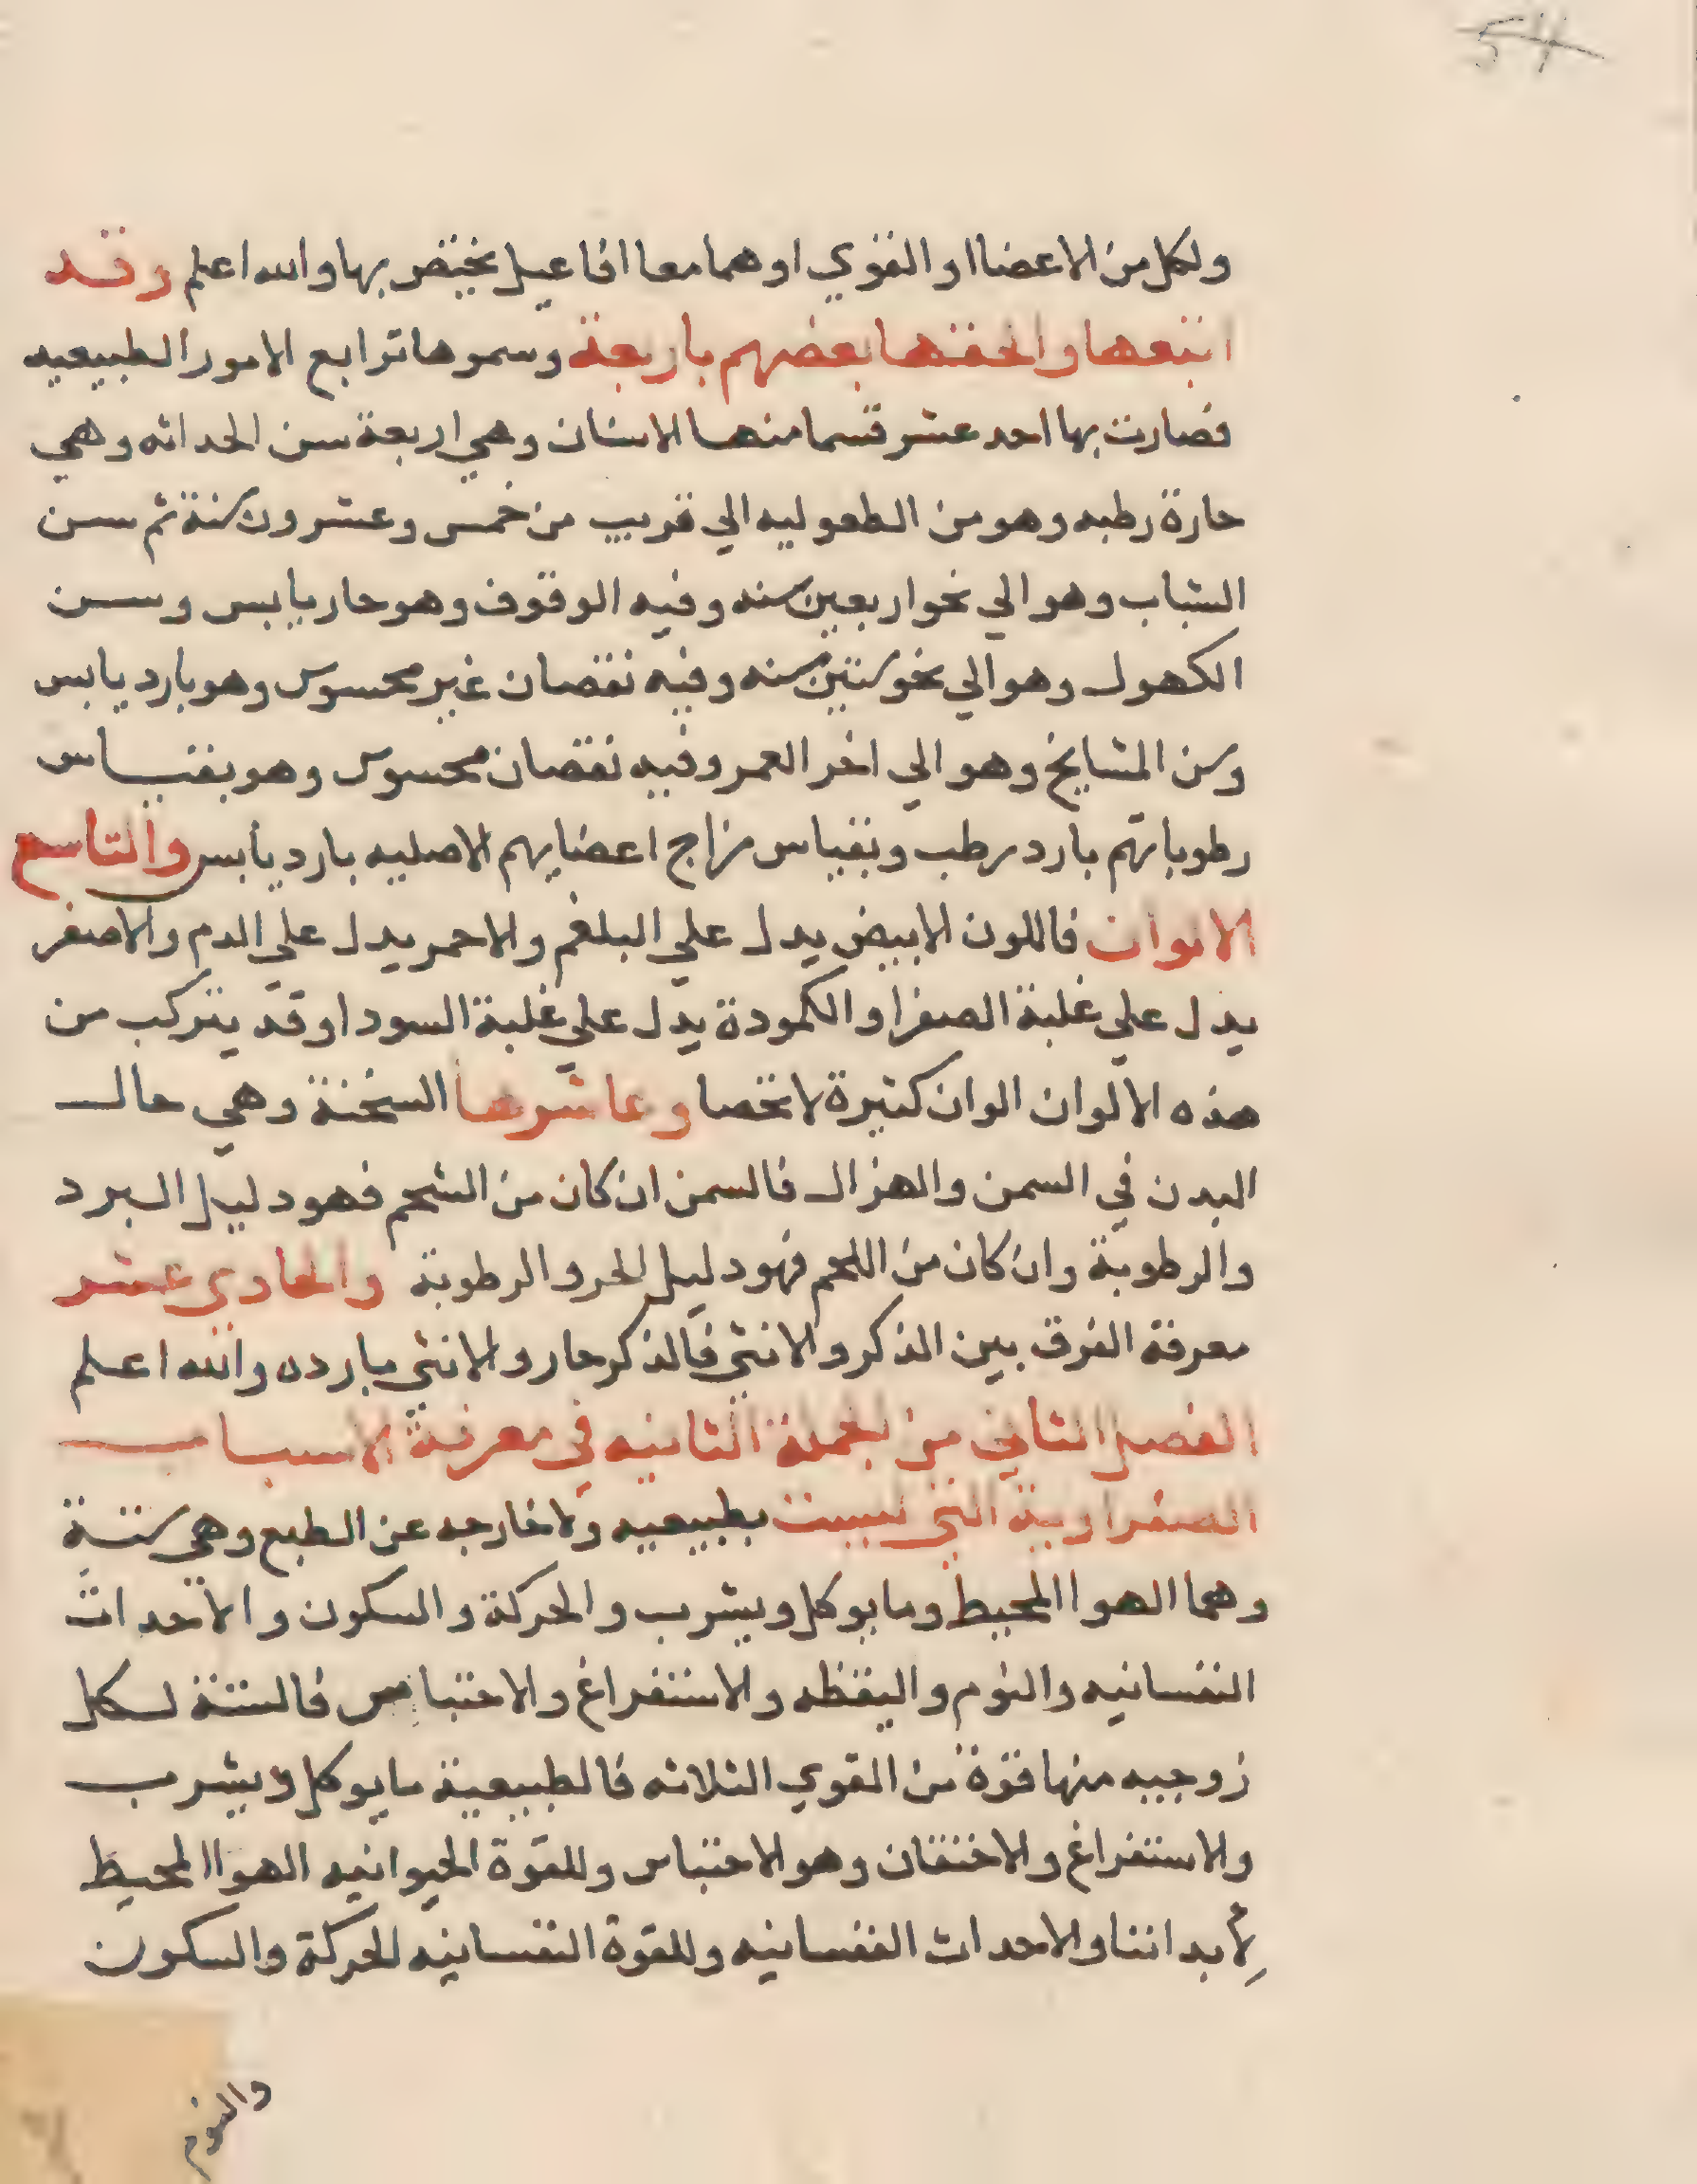 54
ولكل من الاعضا او القوي او هما معا افاعيل يختص بها والله اعلم وقد
اتبعها والحقها بعضهم باربعة وسموها توابع الامور الطبيعيه
فصارت بها احد عشر قسما منها الاسنان وهي اربعة سن الحداثه وهي
حارة رطبه وهو من الطفوليه الي قريب من خمس وعشرون سنة ثم سن
الشباب وهو الي نحو اربعين سنه وفيه الوقوف وهو حار يابس وسن
الكهول وهو الي نحو ستين سنه وفيه نقصان غير محسوس وهو بارد يابس
وسن المشايخ وهو الي اخر العمر وفيه نقصان محسوس وهو بقياس
رطوباتهم بارد رطب وبقياس مزاج اعضايهم الاصليه بارد يابس والتاسع
الالوان فاللون الابيض يدل علي البلغم والاحمر يدل علي الدم والاصفر
يدل علي غلبة الصفرا والكمودة يدل علي غلبة السودا وقد يتركب من
هذه الالوان الوان كثيرة لا تحصا وعاشرها السخنة وهي حال
البدن في السمن والهزال فالسمن ان كان من الشحم فهو دليل البرد
والرطوبة وان كان من اللحم فهو دليل الحر والرطوبة والحادي عشر
معرفة الفرق بين الذكر والانثي فالذكر حار والانثي بارده والله اعلم
الفصل الثاني من الجملة الثانيه في معرفة الاسباب
الصفراوية التي ليست بطبيعيه ولا خارجه عن الطبع وهي ستة
وهما الهوا المحيط وما يوكل ويشرب والحركة والسكون والاحداث
النفسانيه والنوم واليقظه والاستفراغ والاحتباس فالستة لكل
زوجيه منها قوة من القوي الثلاثه فالطبيعية ما يوكل ويشرب
والاستفراغ والاحتقان وهو الاحتباس وللقوة الحيوانيه الهوا المحيط
لأبداننا والاحداث النفسانيه وللقوة النفسانيه الحركة والسكون
والنوم